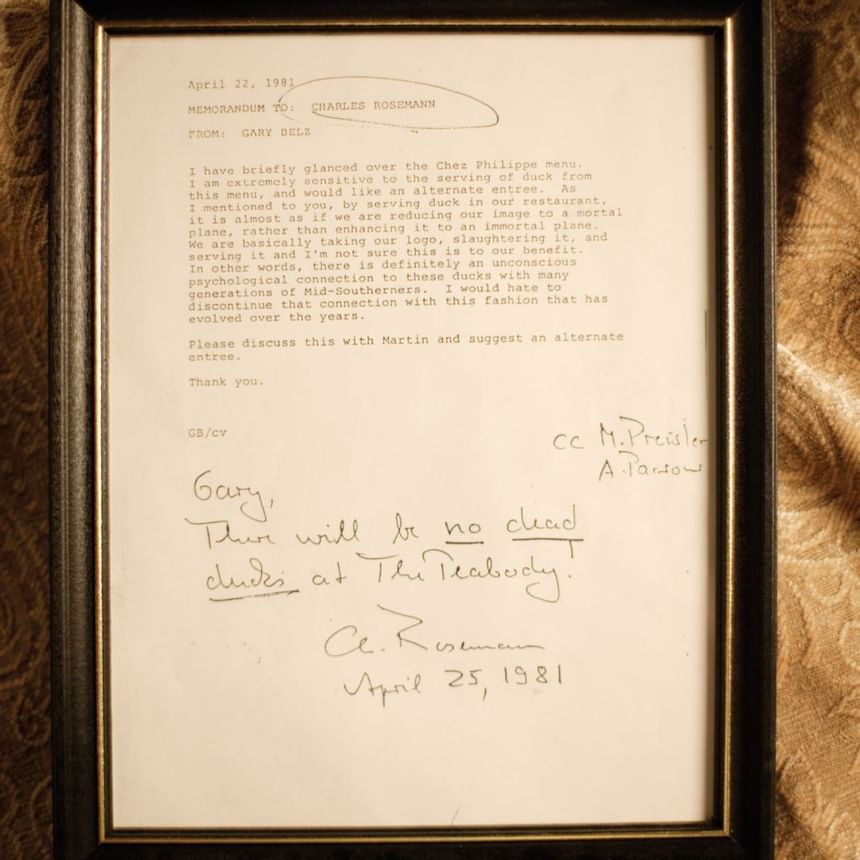 April 22, 1981
MEMORANDUM TO: CHARLES ROSEMANN
FROM: GARY BELZ
I have briefly glanced over the Chez Philippe menu.
I am extremely sensitive to the serving of duck from
this menu, and would like an alternate entree. As
I mentioned to you, by serving duck in our restaurant,
it is almost as if we are reducing our image to a mortal
plane, rather than enhancing it to an immortal plane.
We are basically taking our logo, slaughtering it, and
serving it and I'm not sure this is to our benefit.
In other words, there is definitely an unconscious
psychological connection to these ducks with many
generations of Mid-Southerners. I would hate to
discontinue that connection with this fashion that has
evolved over the years.
Please discuss this with Martin and suggest an alternate
entree.
Thank you.
GB/cv
cc M. Preisler
A. Parsow
Gary,
There will be no dead
ducks at The Peabody!
Ch. Rosemann
April 25, 1981